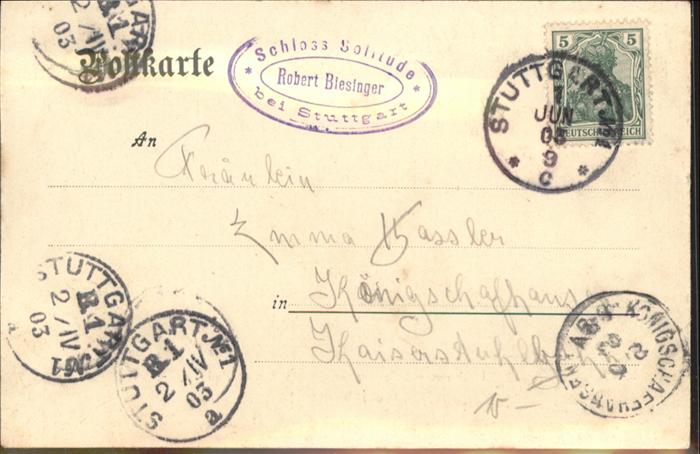 Postkarte
Schloss Solitude
Robert Biesinger
bei Stuttgart
5 5
DEUTSCHES REICH
STUTTGART No1
JUN
03
9
C
STUTTGART
R1
2/IV
03
An
Fräulein
Emma Hassler
in Königschafhausen
Kaiserstuhlbahn
STUTTGART No1
R1
2/IV
03
a
STUTTGART No1
R1
2/IV
03
a
KÖNIGSCHAFFHAUSEN